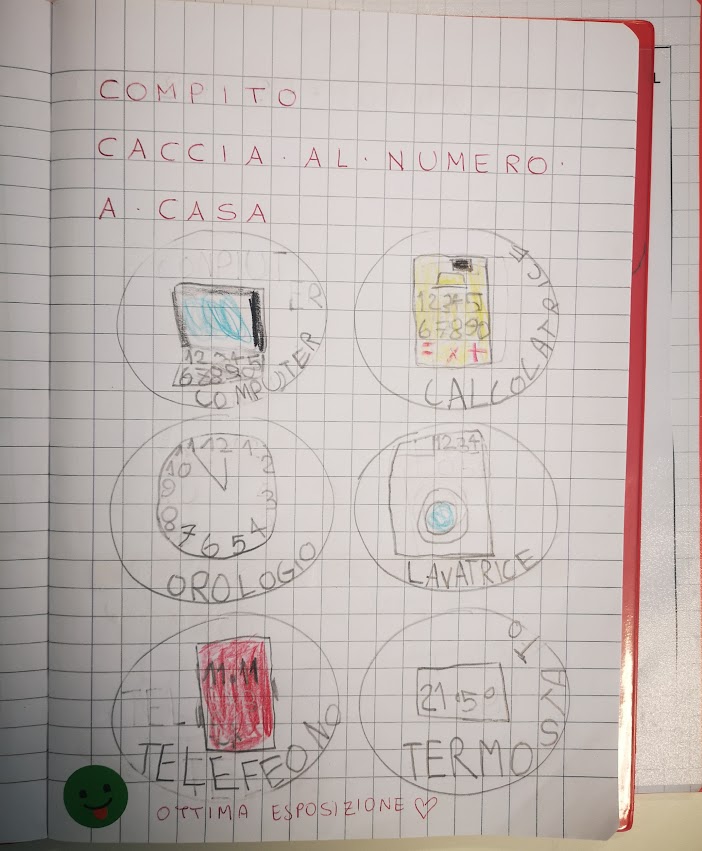 COMPITO
CACCIA·AL·NUMERO·
A·CASA
COMPUTER
12345
67890
COMPUTER
12345
67890
= x +
CALCOLATRICE
11 12 1
10 2
9 3
8 4
7 6 5
OROLOGIO
1234
LAVATRICE
11.11
TEL
TELEFEONO
21.5°
TERMOSTATO
OTTIMA ESPOSIZIONE ♡